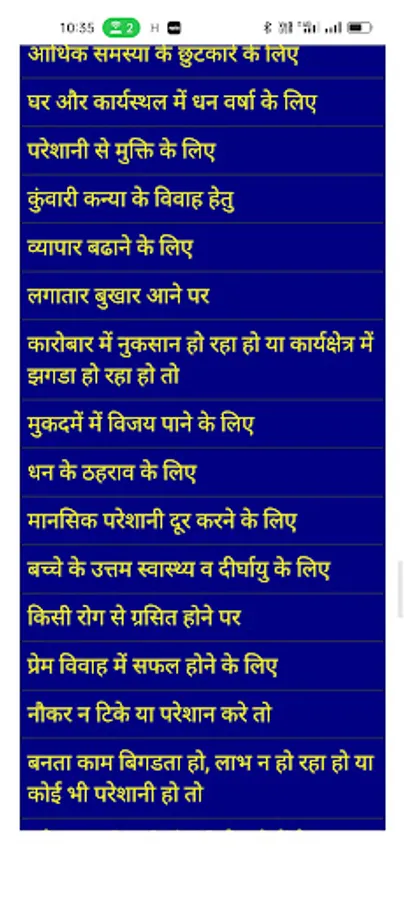 10:35 2 H
आर्थिक समस्या के छुटकारे के लिए
घर और कार्यस्थल में धन वर्षा के लिए
परेशानी से मुक्ति के लिए
कुंवारी कन्या के विवाह हेतु
व्यापार बढाने के लिए
लगातार बुखार आने पर
कारोबार में नुकसान हो रहा हो या कार्यक्षेत्र में
झगडा हो रहा हो तो
मुकदमें में विजय पाने के लिए
धन के ठहराव के लिए
मानसिक परेशानी दूर करने के लिए
बच्चे के उत्तम स्वास्थ्य व दीर्घायु के लिए
किसी रोग से ग्रसित होने पर
प्रेम विवाह में सफल होने के लिए
नौकर न टिके या परेशान करे तो
बनता काम बिगडता हो, लाभ न हो रहा हो या
कोई भी परेशानी हो तो